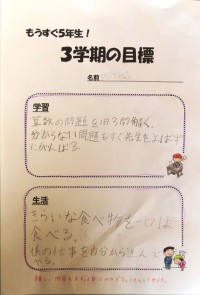 もうすぐ5年生!
3学期の目標
名前
学習
算数の問題を1日3問解く、
分からない問題もすぐ先生をよばず
にがんばる
生活
きらいな食べ物を一口は
食べる。
係の仕事を自分から進んで
やる。